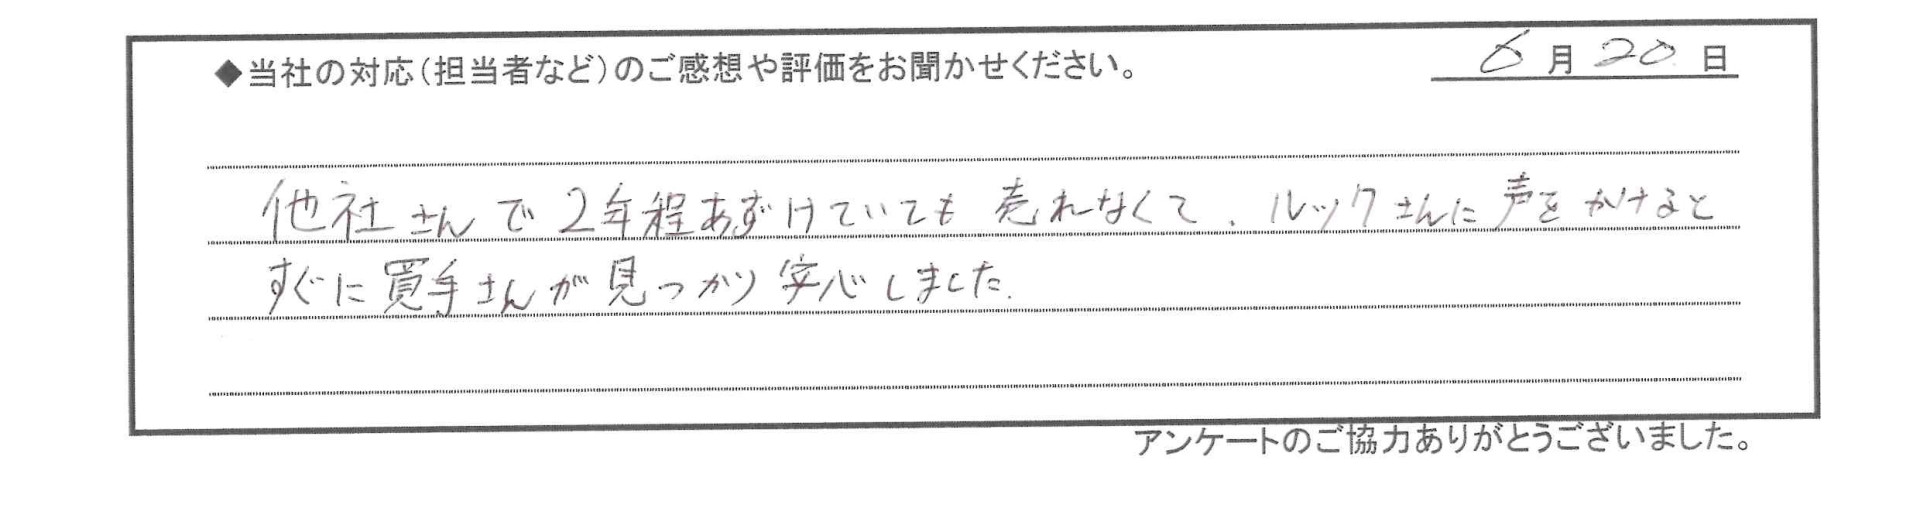 ◆当社の対応(担当者など)のご感想や評価をお聞かせください。 6月20日
他社さんで2年程あずけていても売れなくて、ルックさんに声をかけると
すぐに買手さんが見つかり安心しました。
アンケートのご協力ありがとうございました。